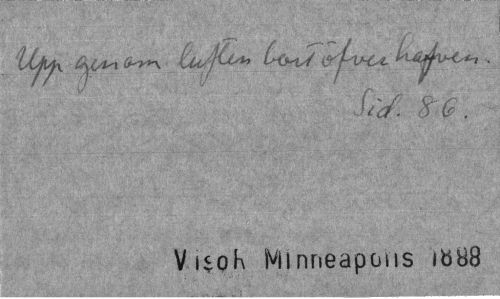 Upp genom luften bort öfver hafven.
Sid. 86.
Visoh Minneapolis 1888